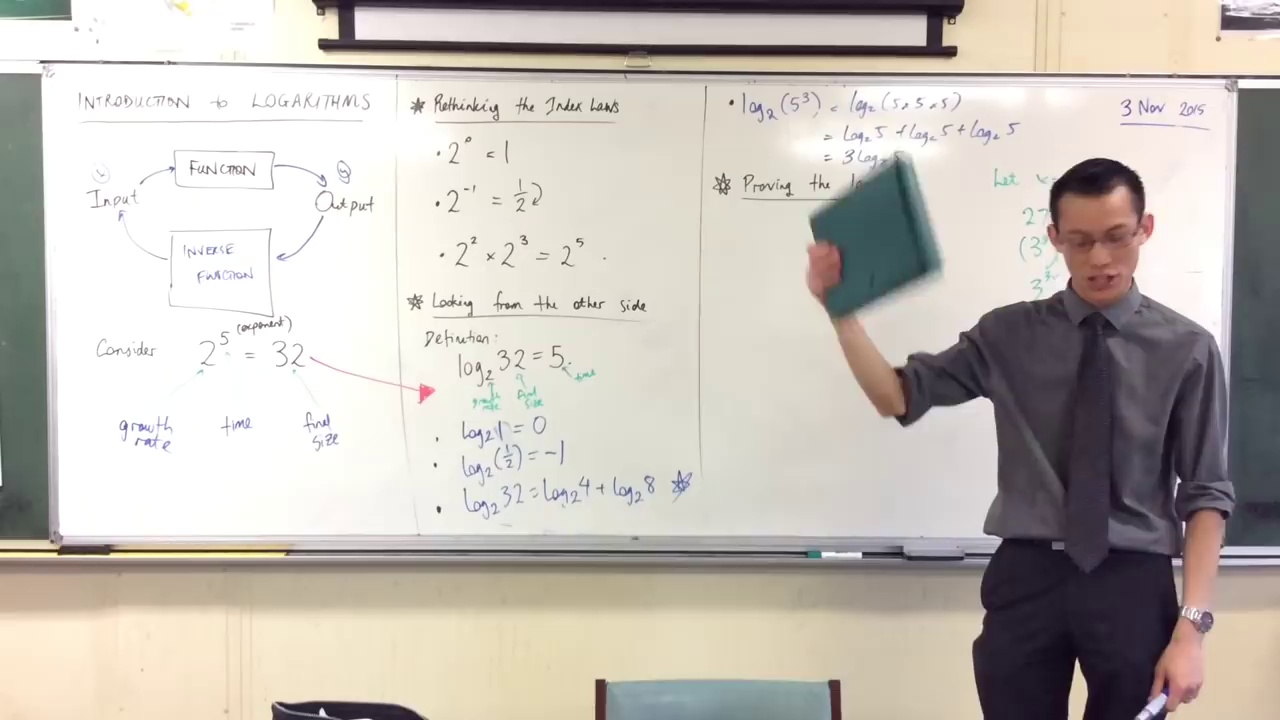 INTRODUCTION to LOGARITHMS
FUNCTION
Input
Output
INVERSE
FUNCTION
Consider
2^5 = 32
(exponent)
growth rate
time
final size
* Rethinking the Index Laws
• 2^0 = 1
• 2^-1 = 1/2
• 2^2 × 2^3 = 2^5
* Looking from the other side
Definition:
log_2 32 = 5
growth rate
final size
time
• log_2 1 = 0
• log_2 (1/2) = -1
• log_2 32 = log_2 4 + log_2 8 *
• log_2 (5^3) = log_2 (5 × 5 × 5)
= log_2 5 + log_2 5 + log_2 5
= 3 log_2 5
* Proving the
3 Nov 2015
Let x
27
(3
3